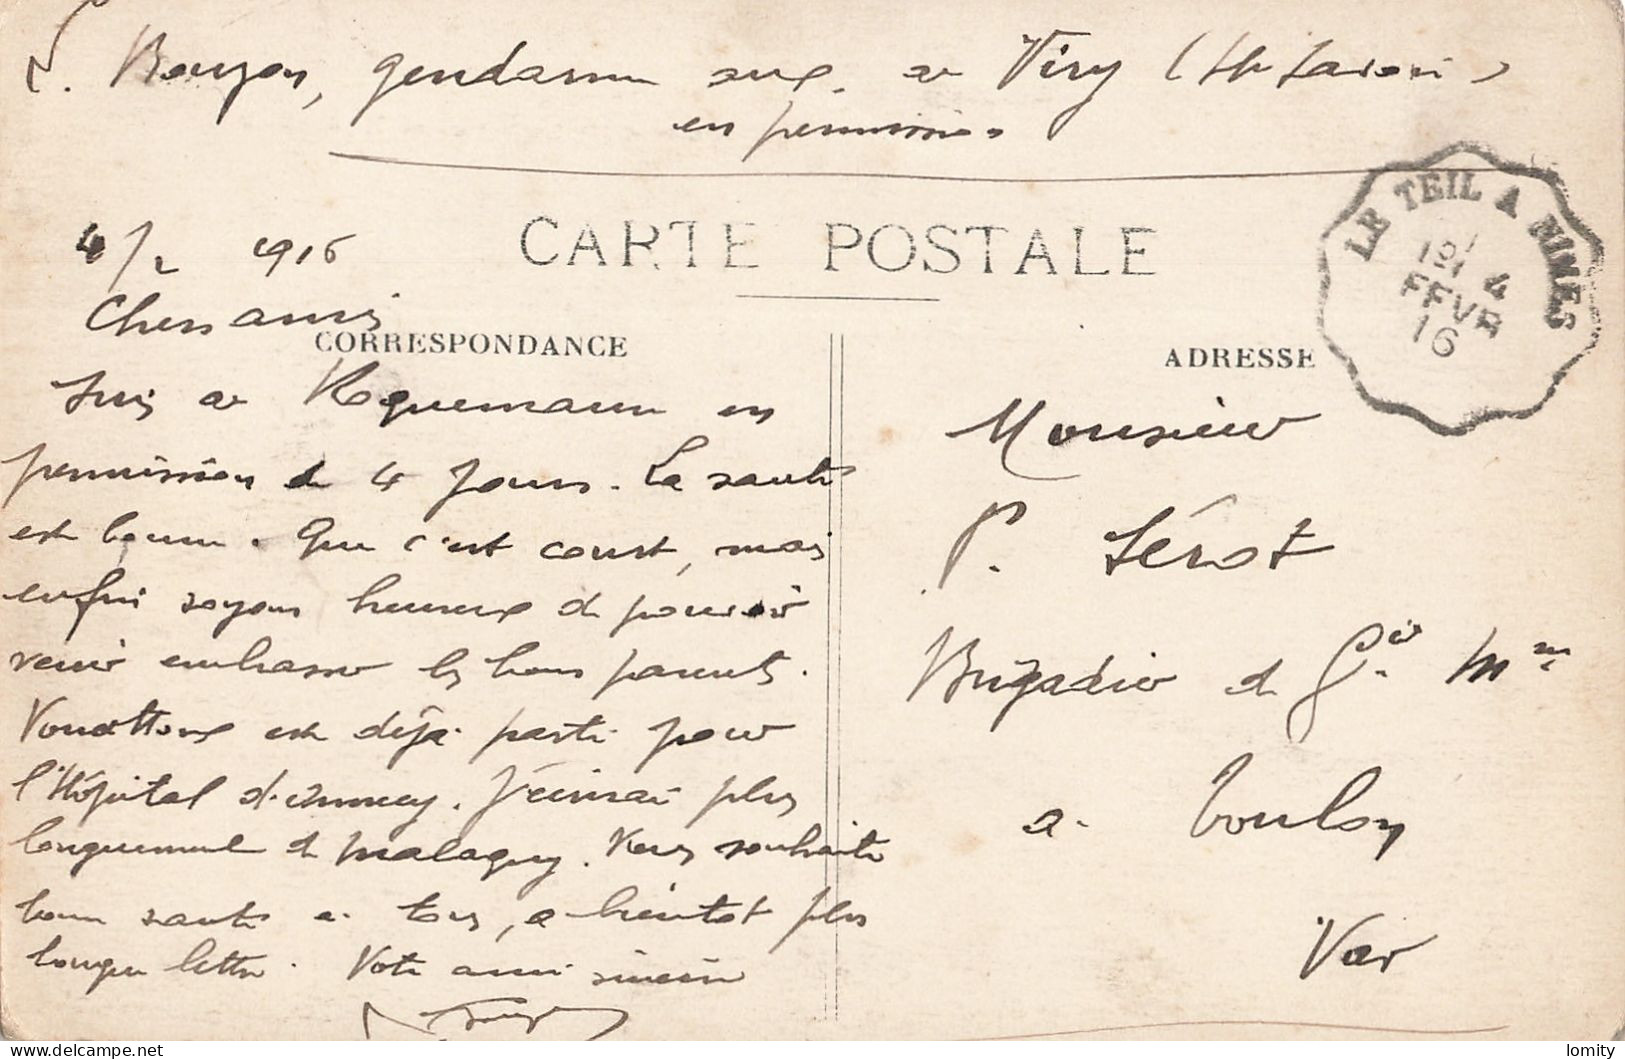 Bouzon, gendarme sup. à Viry (Hte Savoie)
en permission
CARTE POSTALE
LE TEIL A NIMES
4
FEVR
16
4/2 1916
Chers amis
CORRESPONDANCE
ADRESSE
Suis à Roquemaure en
permission de 4 jours. La santé
est bonne. Que c'est court, mais
enfin soyons heureux de pouvoir
venir embrasser les bons parents.
est déjà parti pour
l'Hôpital d'Annecy. J'écrirai plus
longuement de Malagny. Vous souhaite
bonne santé à tous, à bientôt plus
longue lettre. Votre ami sincère
Monsieur
P. Sérot
Brigadier de Gie Mme
à Toulon
Var
lomity
www.delcampe.net